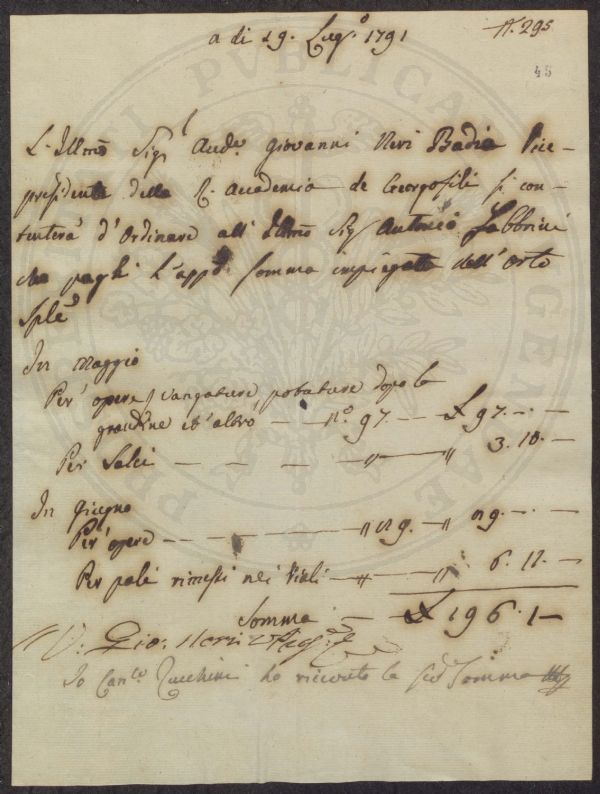 N. 295
a di 29. Lug.o 1791
45
L'Illmo Sigr Aud.e Giovanni Neri Badia Vice=
presidente della R. Accademia de Georgofili si con=
tenterà d'Ordinare all'Illmo Sigr Antonio Fabbrini
che paghi l'app.a somma impiegata dell'Orto
Sple
In Maggio
Per opere, vangature, potature dopo la
grandine ed altro — n.o 97. — £ 97. -. —
Per Salci — — — — " — " 3. 10. —
In Giugno
Per opere — — " 89. — " 89. -. —
Per pali rimessi nei Viali — " — " 6. 11. —
Somma — £ 196. 1 —
V: Gio: Neri
Io Can.co Zucchini ho ricevuto la sud.a Somma